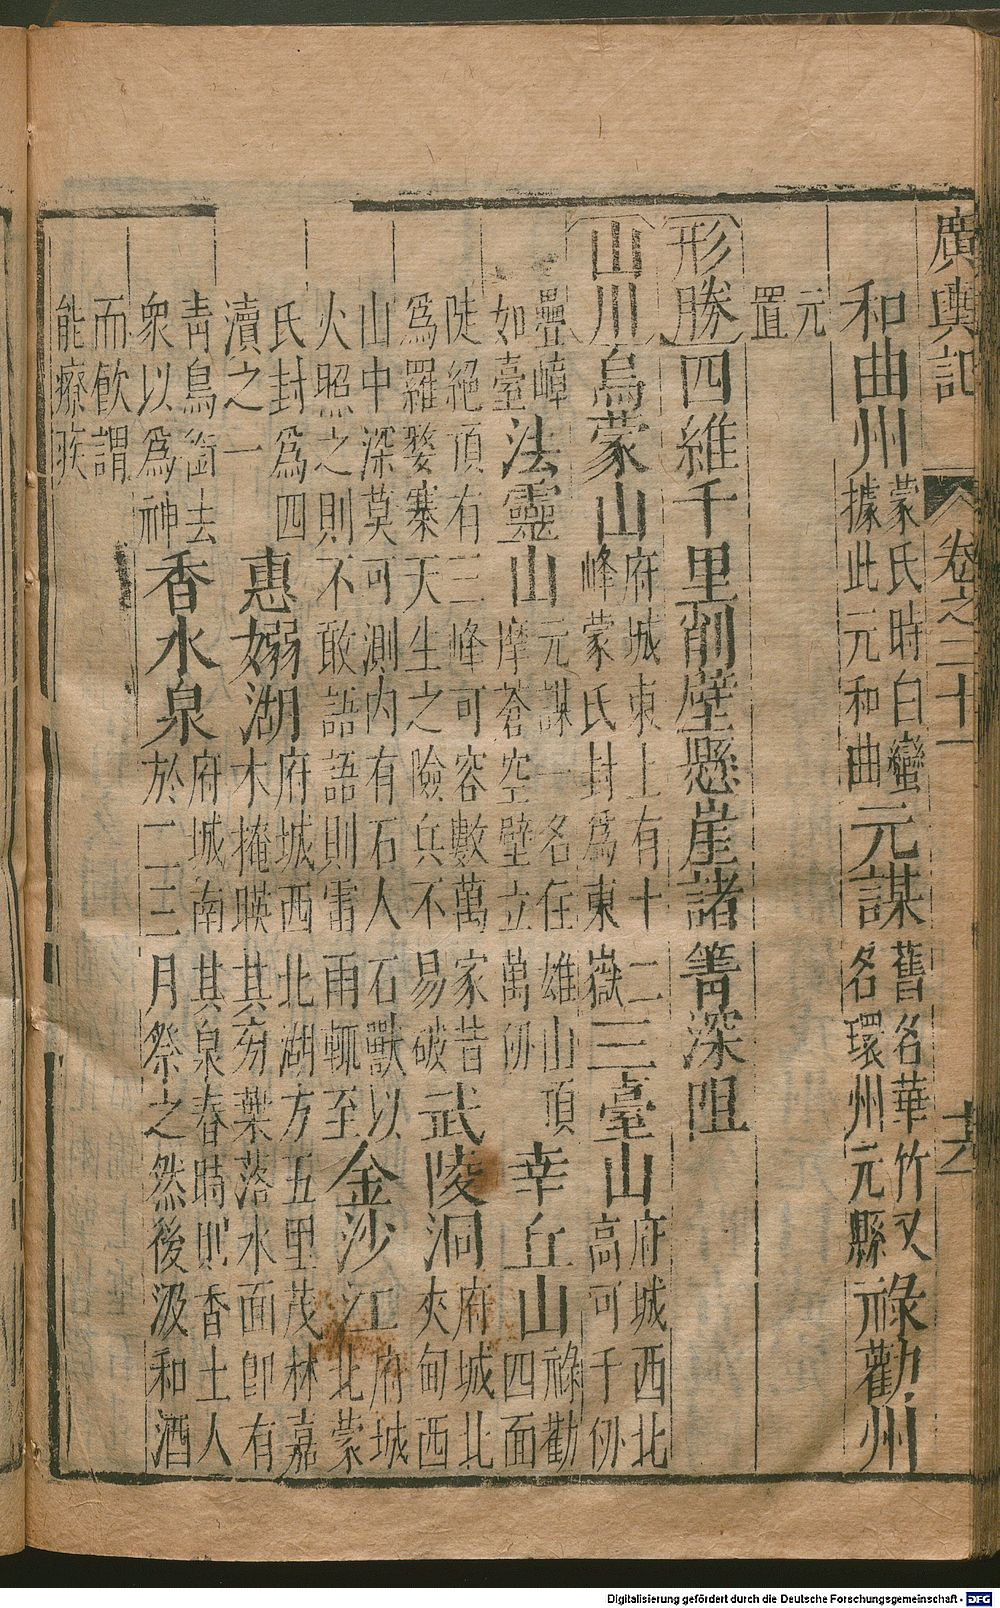 廣輿記 卷之二十一 十六
和曲州蒙氏時白蠻據此元和曲元謀舊名華竹又名環州元縣祿勸州
元置
形勝四維千里削壁懸崖諸箐深阻
山川烏蒙山府城東上有十二峰蒙氏封爲東嶽三臺山府城西北高可千仞
疊嶂如臺法靈山元謀一名住雄山頂摩蒼空壁立萬仞幸丘山祿勸四面
陡絕頂有三峰可容數萬家昔爲羅婺寨天生之險兵不易破武陵洞府城北夾甸西
山中深莫可測内有石人石獸以火照之則不敢語語則雷雨輒至金沙江府城北蒙
氏封爲四瀆之一惠嫋湖府城西北湖方五里茂林嘉木掩暎其旁葉落水面即有
靑鳥銜去衆以爲神香水泉府城南其泉春時則香土人於二三月祭之然後汲和酒
而飲謂能療疾
Digitalisierung gefördert durch die Deutsche Forschungsgemeinschaft - DFG